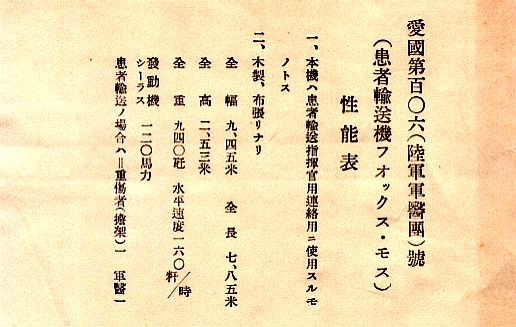 愛國第百〇六(陸軍軍醫團)號
(患者輸送機フオックス・モス)
性能表
一、本機ハ患者輸送指揮官用連絡用ニ使用スルモ
ノトス
二、木製、布張リナリ
全幅 九、四五米 全長 七、八五米
全高 二、五三米
全重 九四〇瓩 水平速度一六〇粁/時
發動機
シーラス 一二〇馬力
患者輸送ノ場合ハ=重傷者(擔架)一 軍醫一